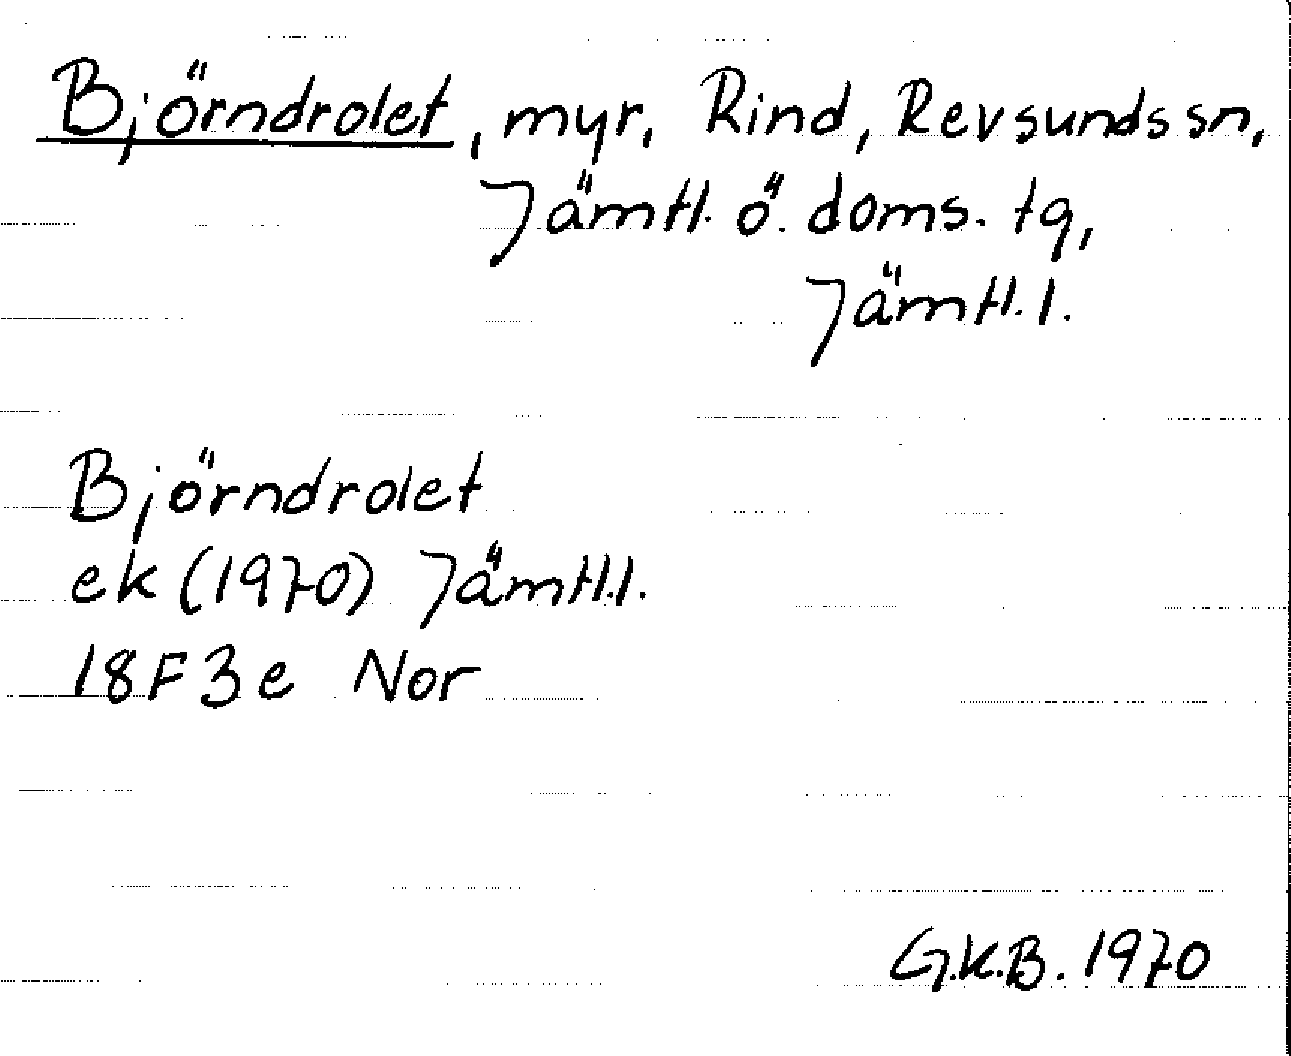 Björndrolet, myr, Rind, Revsunds sn,
Jämtl. ö. doms. tg,
Jämtl. l.
Björndrolet
ek (1970) Jämtl.l.
18F3e Nor
G.K.B. 1970